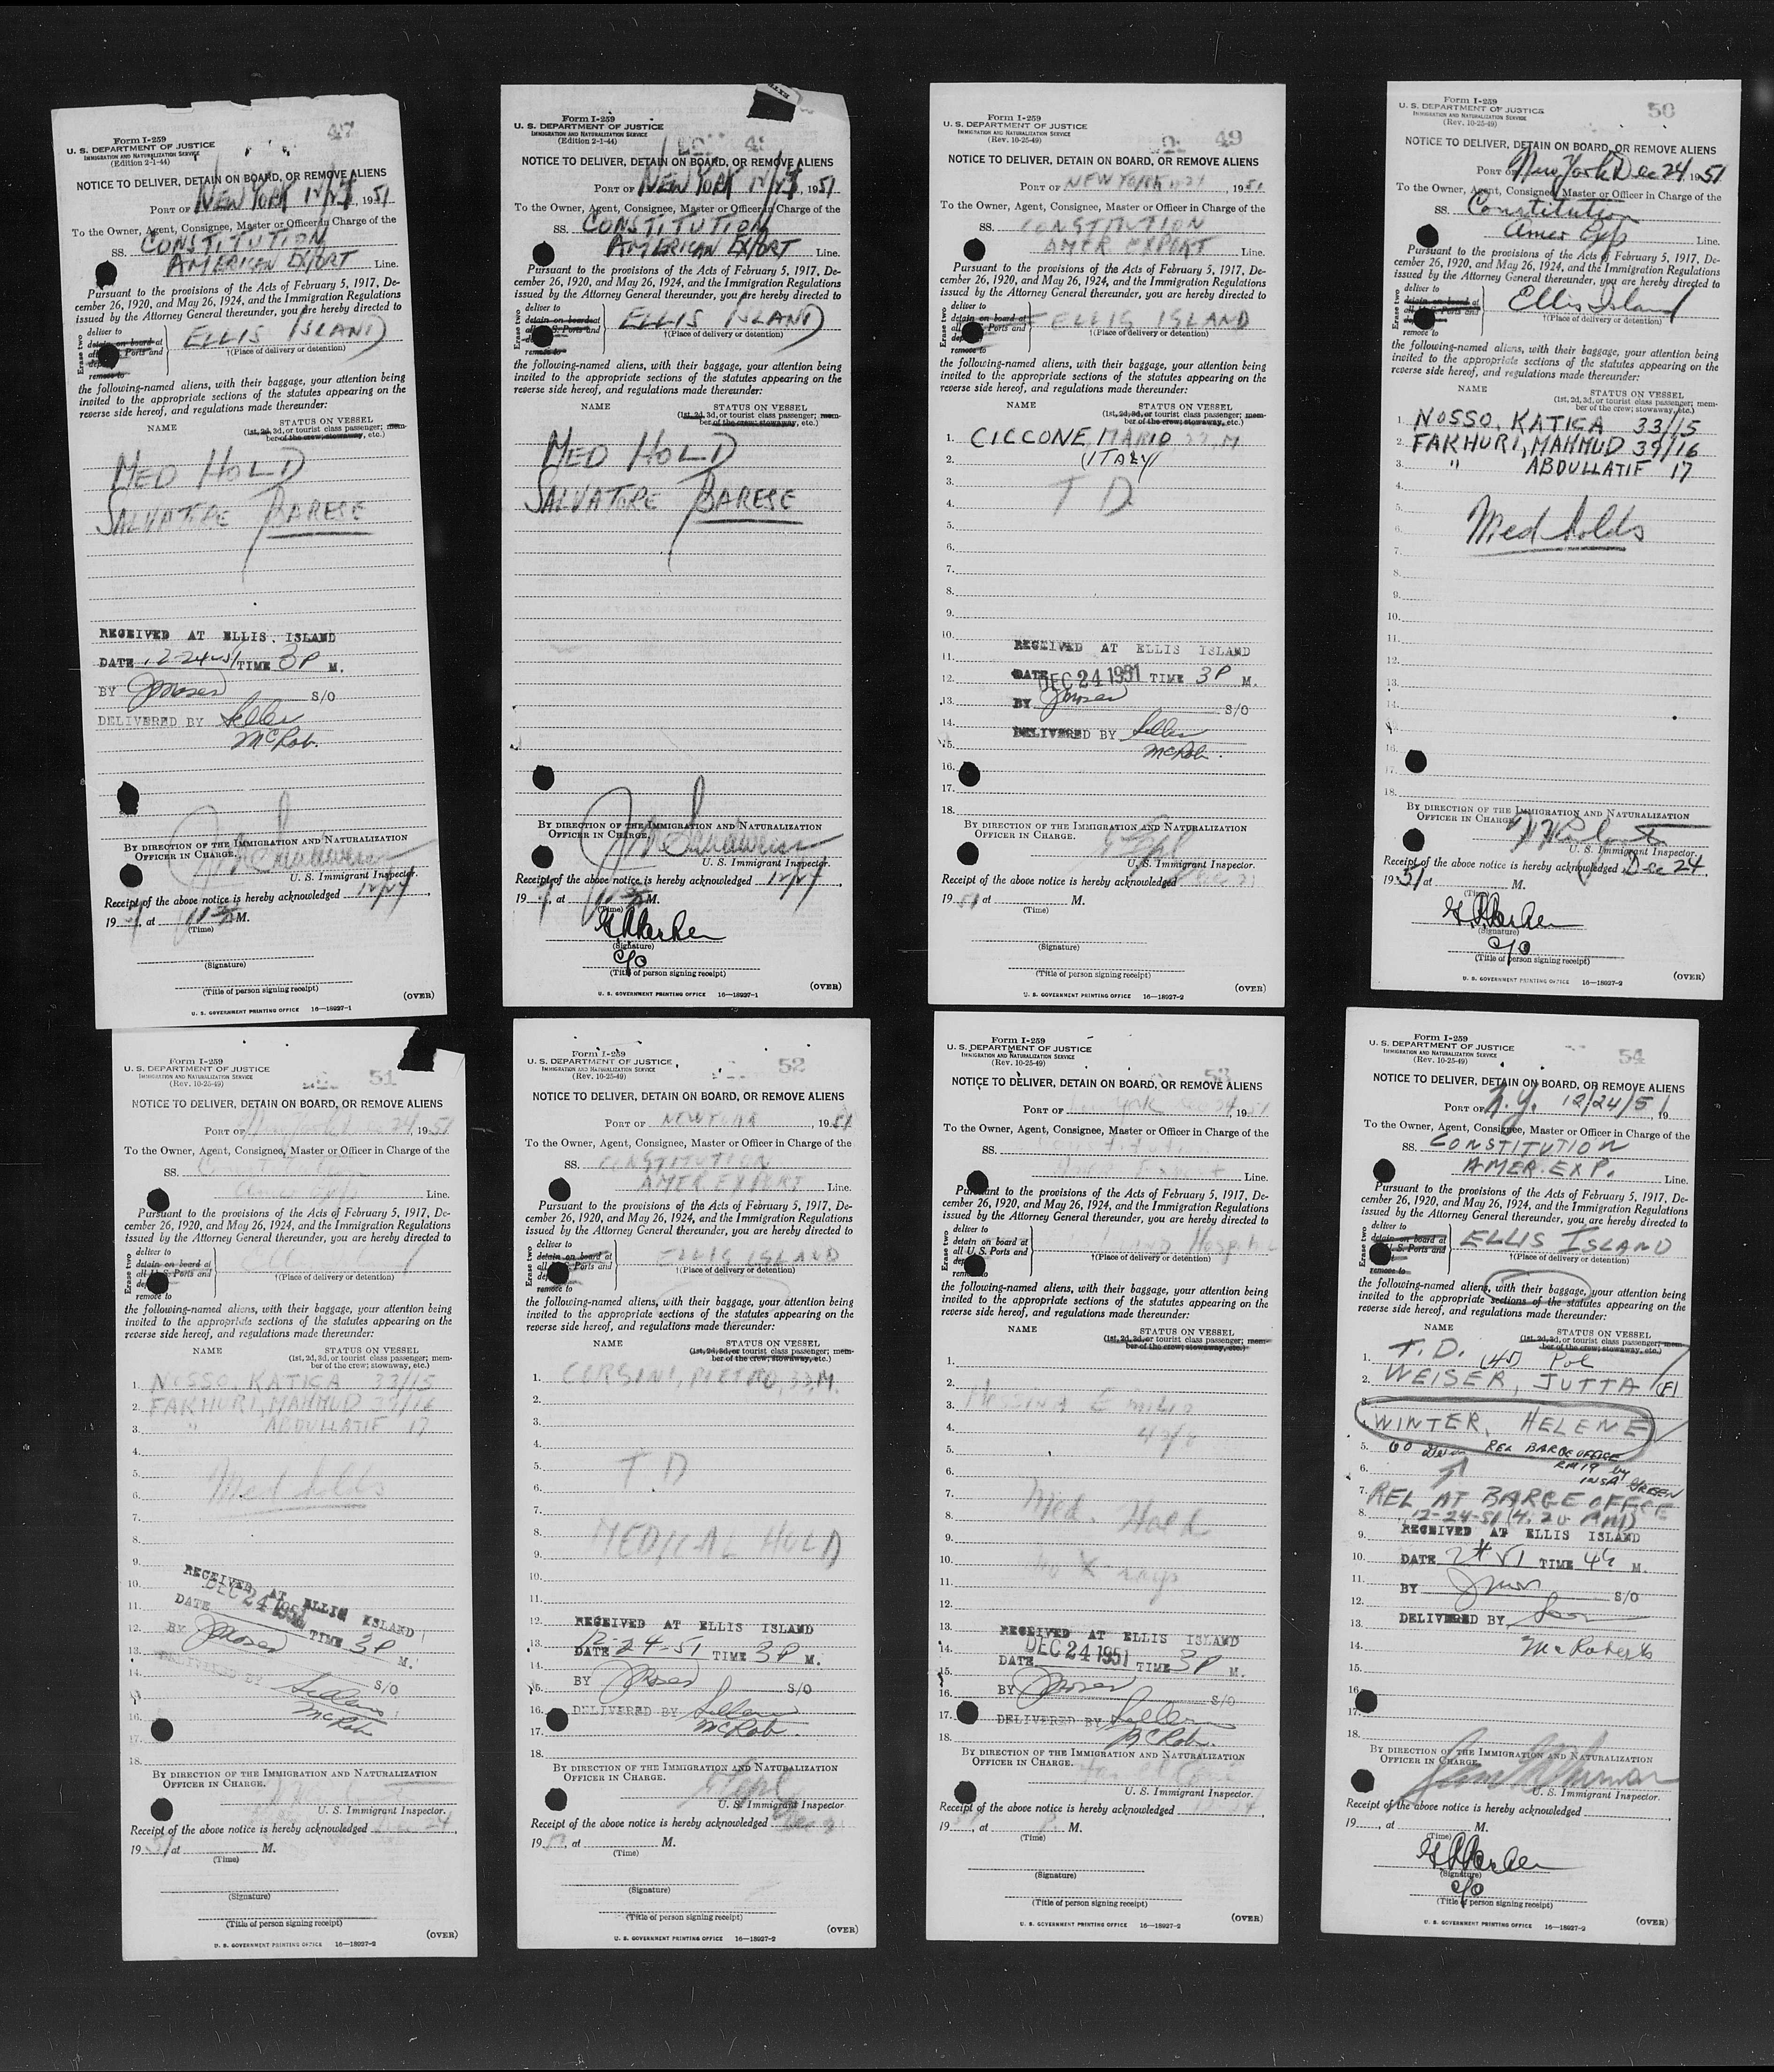 47
Form I-259
U. S. DEPARTMENT OF JUSTICE
IMMIGRATION AND NATURALIZATION SERVICE
(Edition 2-1-44)
NOTICE TO DELIVER, DETAIN ON BOARD, OR REMOVE ALIENS
PORT OF NEW YORK 12/24, 1951
To the Owner, Agent, Consignee, Master or Officer in Charge of the
SS. CONSTITUTION
AMERICAN EXPORT Line.
Pursuant to the provisions of the Acts of February 5, 1917, De-
cember 26, 1920, and May 26, 1924, and the Immigration Regulations
issued by the Attorney General thereunder, you are hereby directed to
Erase two
deliver to
detain on board at
all U. S. Ports and
remove to
ELLIS ISLAND
†(Place of delivery or detention)
the following-named aliens, with their baggage, your attention being
invited to the appropriate sections of the statutes appearing on the
reverse side hereof, and regulations made thereunder:
NAME STATUS ON VESSEL
(1st, 2d, 3d, or tourist class passenger; mem-
ber of the crew; stowaway, etc.)
MED HOLD
SALVATORE BARESE
RECEIVED AT ELLIS ISLAND
DATE 12-24-51 TIME 3P M.
BY JMoser S/O
DELIVERED BY Seller
McRob.
BY DIRECTION OF THE IMMIGRATION AND NATURALIZATION
OFFICER IN CHARGE.
U. S. Immigrant Inspector.
Receipt of the above notice is hereby acknowledged 12/24,
19, at 11 AM.
(Time)
(Signature)
(Title of person signing receipt)
(OVER)
U. S. GOVERNMENT PRINTING OFFICE 16—18927-1
Form I-259
U. S. DEPARTMENT OF JUSTICE
IMMIGRATION AND NATURALIZATION SERVICE
(Edition 2-1-44)
NOTICE TO DELIVER, DETAIN ON BOARD, OR REMOVE ALIENS
PORT OF NEW YORK 12/24, 1951
To the Owner, Agent, Consignee, Master or Officer in Charge of the
SS. CONSTITUTION
AMERICAN EXPORT Line.
Pursuant to the provisions of the Acts of February 5, 1917, De-
cember 26, 1920, and May 26, 1924, and the Immigration Regulations
issued by the Attorney General thereunder, you are hereby directed to
Erase two
deliver to
detain on board at
all U. S. Ports and
remove to
ELLIS ISLAND
†(Place of delivery or detention)
the following-named aliens, with their baggage, your attention being
invited to the appropriate sections of the statutes appearing on the
reverse side hereof, and regulations made thereunder:
NAME STATUS ON VESSEL
(1st, 2d, 3d, or tourist class passenger; mem-
ber of the crew; stowaway, etc.)
MED HOLD
SALVATORE BARESE
BY DIRECTION OF THE IMMIGRATION AND NATURALIZATION
OFFICER IN CHARGE.
U. S. Immigrant Inspector.
Receipt of the above notice is hereby acknowledged 12/24,
19, at 11 AM.
(Time)
(Signature)
C/O
(Title of person signing receipt)
(OVER)
U. S. GOVERNMENT PRINTING OFFICE 16—18927-1
49
Form I-259
U. S. DEPARTMENT OF JUSTICE
IMMIGRATION AND NATURALIZATION SERVICE
(Rev. 10-25-49)
NOTICE TO DELIVER, DETAIN ON BOARD, OR REMOVE ALIENS
PORT OF NEW YORK, 1951
To the Owner, Agent, Consignee, Master or Officer in Charge of the
SS. CONSTITUTION
AMER EXPORT Line.
Pursuant to the provisions of the Acts of February 5, 1917, De-
cember 26, 1920, and May 26, 1924, and the Immigration Regulations
issued by the Attorney General thereunder, you are hereby directed to
Erase two
deliver to
detain on board at
all U. S. Ports and
remove to
ELLIS ISLAND
†(Place of delivery or detention)
the following-named aliens, with their baggage, your attention being
invited to the appropriate sections of the statutes appearing on the
reverse side hereof, and regulations made thereunder:
NAME STATUS ON VESSEL
(1st, 2d, 3d, or tourist class passenger; mem-
ber of the crew; stowaway, etc.)
1. CICCONE, MARIO M
2. (ITALY)
3. T D
4.
5.
6.
7.
8.
9.
10.
RECEIVED AT ELLIS ISLAND
11.
12. DATE DEC 24 1951 TIME 3P M.
13. BY JMoser S/O
14. DELIVERED BY Seller
15. McRob.
16.
17.
18.
BY DIRECTION OF THE IMMIGRATION AND NATURALIZATION
OFFICER IN CHARGE.
U. S. Immigrant Inspector.
Receipt of the above notice is hereby acknowledged
1951 at M.
(Time)
(Signature)
(Title of person signing receipt)
U. S. GOVERNMENT PRINTING OFFICE 16—18927-2 (OVER)
50
Form I-259
U. S. DEPARTMENT OF JUSTICE
IMMIGRATION AND NATURALIZATION SERVICE
(Rev. 10-25-49)
NOTICE TO DELIVER, DETAIN ON BOARD, OR REMOVE ALIENS
PORT OF New York Dec 24 1951
To the Owner, Agent, Consignee, Master or Officer in Charge of the
SS. Constitution
Amer Exp Line.
Pursuant to the provisions of the Acts of February 5, 1917, De-
cember 26, 1920, and May 26, 1924, and the Immigration Regulations
issued by the Attorney General thereunder, you are hereby directed to
Erase two
deliver to
detain on board at
all U. S. Ports and
remove to
Ellis Island
†(Place of delivery or detention)
the following-named aliens, with their baggage, your attention being
invited to the appropriate sections of the statutes appearing on the
reverse side hereof, and regulations made thereunder:
NAME STATUS ON VESSEL
(1st, 2d, 3d, or tourist class passenger; mem-
ber of the crew; stowaway, etc.)
1. NOSSO, KATICA 33/15
2. FAKHURI, MAHMUD 39/16
3. " ABDULLATIF 17
4.
5.
6. Med holds
7.
8.
9.
10.
11.
12.
13.
14.
16.
17.
18.
BY DIRECTION OF THE IMMIGRATION AND NATURALIZATION
OFFICER IN CHARGE.
U. S. Immigrant Inspector.
Receipt of the above notice is hereby acknowledged Dec 24
1951 at M.
(Time)
(Signature)
C/O
(Title of person signing receipt)
(OVER)
U. S. GOVERNMENT PRINTING OFFICE 16—18927-2
51
Form I-259
U. S. DEPARTMENT OF JUSTICE
IMMIGRATION AND NATURALIZATION SERVICE
(Rev. 10-25-49)
NOTICE TO DELIVER, DETAIN ON BOARD, OR REMOVE ALIENS
PORT OF New York Dec 24, 1951
To the Owner, Agent, Consignee, Master or Officer in Charge of the
SS.
Amer Exp Line.
Pursuant to the provisions of the Acts of February 5, 1917, De-
cember 26, 1920, and May 26, 1924, and the Immigration Regulations
issued by the Attorney General thereunder, you are hereby directed to
Erase two
deliver to
detain on board at
all U. S. Ports and
remove to
†(Place of delivery or detention)
the following-named aliens, with their baggage, your attention being
invited to the appropriate sections of the statutes appearing on the
reverse side hereof, and regulations made thereunder:
NAME STATUS ON VESSEL
(1st, 2d, 3d, or tourist class passenger; mem-
ber of the crew; stowaway, etc.)
1. NOSSO, KATICA 33/15
2. FAKHURI, MAHMUD 39/16
3. " ABDULLATIF 17
4.
5.
6. Med holds
7.
8.
9.
10. RECEIVED AT ELLIS ISLAND
11. DATE DEC 24 1951 TIME 3P M.
12. BY JMoser S/O
13. DELIVERED BY Seller
14. McRob
16.
17.
18.
BY DIRECTION OF THE IMMIGRATION AND NATURALIZATION
OFFICER IN CHARGE.
U. S. Immigrant Inspector.
Receipt of the above notice is hereby acknowledged Dec 24,
1951 at M.
(Time)
(Signature)
(Title of person signing receipt)
(OVER)
U. S. GOVERNMENT PRINTING OFFICE 16—18927-2
52
Form I-259
U. S. DEPARTMENT OF JUSTICE
IMMIGRATION AND NATURALIZATION SERVICE
(Rev. 10-25-49)
NOTICE TO DELIVER, DETAIN ON BOARD, OR REMOVE ALIENS
PORT OF NEW YORK, 1951
To the Owner, Agent, Consignee, Master or Officer in Charge of the
SS. CONSTITUTION
AMER EXPORT Line.
Pursuant to the provisions of the Acts of February 5, 1917, De-
cember 26, 1920, and May 26, 1924, and the Immigration Regulations
issued by the Attorney General thereunder, you are hereby directed to
Erase two
deliver to
detain on board at
all U. S. Ports and
remove to
ELLIS ISLAND
†(Place of delivery or detention)
the following-named aliens, with their baggage, your attention being
invited to the appropriate sections of the statutes appearing on the
reverse side hereof, and regulations made thereunder:
NAME STATUS ON VESSEL
(1st, 2d, 3d, or tourist class passenger; mem-
ber of the crew; stowaway, etc.)
1. CORSINI, PIETRO, 33, M.
2.
3.
4.
5. T D
6.
7.
8. MEDICAL HOLD
9.
10.
11.
12. RECEIVED AT ELLIS ISLAND
13. DATE 12-24-51 TIME 3P M.
14.
15. BY JMoser S/O
16. DELIVERED BY Seller
17. McRob
18.
BY DIRECTION OF THE IMMIGRATION AND NATURALIZATION
OFFICER IN CHARGE.
U. S. Immigrant Inspector
Receipt of the above notice is hereby acknowledged
1951, at M.
(Time)
(Signature)
(Title of person signing receipt)
(OVER)
U. S. GOVERNMENT PRINTING OFFICE 16—18927-2
53
Form I-259
U. S. DEPARTMENT OF JUSTICE
IMMIGRATION AND NATURALIZATION SERVICE
(Rev. 10-25-49)
NOTICE TO DELIVER, DETAIN ON BOARD, OR REMOVE ALIENS
PORT OF New York Dec 24 1951
To the Owner, Agent, Consignee, Master or Officer in Charge of the
SS. Constitution
Amer Export Line.
Pursuant to the provisions of the Acts of February 5, 1917, De-
cember 26, 1920, and May 26, 1924, and the Immigration Regulations
issued by the Attorney General thereunder, you are hereby directed to
Erase two
deliver to
detain on board at
all U. S. Ports and
remove to
Hospital
†(Place of delivery or detention)
the following-named aliens, with their baggage, your attention being
invited to the appropriate sections of the statutes appearing on the
reverse side hereof, and regulations made thereunder:
NAME STATUS ON VESSEL
(1st, 2d, 3d, or tourist class passenger; mem-
ber of the crew; stowaway, etc.)
1.
2.
3. Messina Emilio
4.
5.
6.
7. Med. Hold
8.
9.
10. no X rays
11.
12.
13. RECEIVED AT ELLIS ISLAND
14. DATE DEC 24 1951 TIME 3P M.
15. BY JMoser S/O
16.
17. DELIVERED BY Seller
18. McRob.
BY DIRECTION OF THE IMMIGRATION AND NATURALIZATION
OFFICER IN CHARGE.
U. S. Immigrant Inspector.
Receipt of the above notice is hereby acknowledged
19, at M.
(Time)
(Signature)
(Title of person signing receipt)
U. S. GOVERNMENT PRINTING OFFICE 16—18927-2 (OVER)
54
Form I-259
U. S. DEPARTMENT OF JUSTICE
IMMIGRATION AND NATURALIZATION SERVICE
(Rev. 10-25-49)
NOTICE TO DELIVER, DETAIN ON BOARD, OR REMOVE ALIENS
PORT OF N.Y. 12/24/51, 19
To the Owner, Agent, Consignee, Master or Officer in Charge of the
SS. CONSTITUTION
AMER. EXP. Line.
Pursuant to the provisions of the Acts of February 5, 1917, De-
cember 26, 1920, and May 26, 1924, and the Immigration Regulations
issued by the Attorney General thereunder, you are hereby directed to
Erase two
deliver to
detain on board at
all U. S. Ports and
remove to
ELLIS ISLAND
†(Place of delivery or detention)
the following-named aliens, with their baggage, your attention being
invited to the appropriate sections of the statutes appearing on the
reverse side hereof, and regulations made thereunder:
NAME STATUS ON VESSEL
(1st, 2d, 3d, or tourist class passenger; mem-
ber of the crew; stowaway, etc.)
1. T.D. (45) Pol
2. WEISER, JUTTA (F)
4. WINTER, HELENE
5. 60 REL BARGE OFFICE
6. RM 19 by
INSP GREEN
7. REL AT BARGE OFFICE
8. 12-24-51 (4:20 PM)
9. RECEIVED AT ELLIS ISLAND
10. DATE TIME M.
11. BY JMoser S/O
12.
13. DELIVERED BY
14. McRoberts
15.
16.
17.
18.
BY DIRECTION OF THE IMMIGRATION AND NATURALIZATION
OFFICER IN CHARGE.
U. S. Immigrant Inspector.
Receipt of the above notice is hereby acknowledged
19, at M.
(Time)
(Signature)
C/O
(Title of person signing receipt)
(OVER)
U. S. GOVERNMENT PRINTING OFFICE 16—18927-2